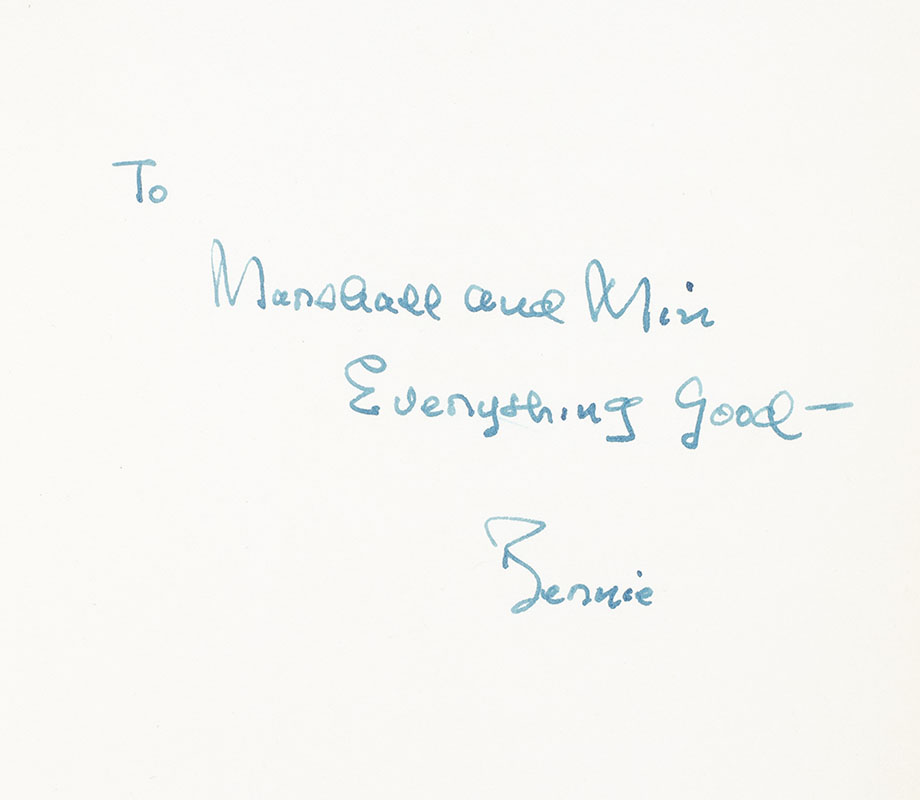 To
Marshall and Min
Everything Good—
Bernie